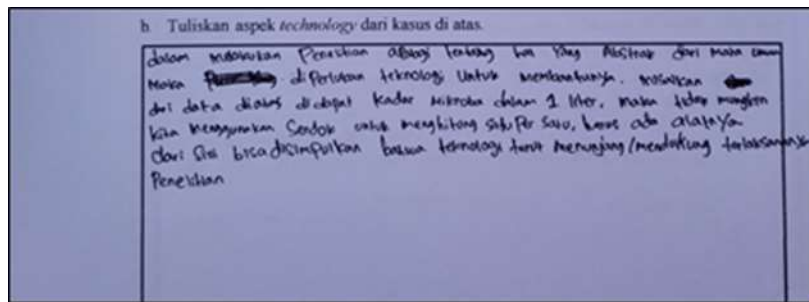 b. Tuliskan aspek technology dari kasus di atas.
dalam melakukan Penelitian apalagi tentang hal Yang Abstrak dari mata umum
Maka diperlukan teknologi Untuk membantunya. misalkan
dari data diatas didapat kadar mikroba dalam 1 liter, maka tidak mungkin
kita menggunakan Sendok untuk menghitung satu Per Satu, harus ada alatnya
dari Sisi bisa disimpulkan bahwa teknologi turut menunjang/mendukung terlaksananya
Penelitian